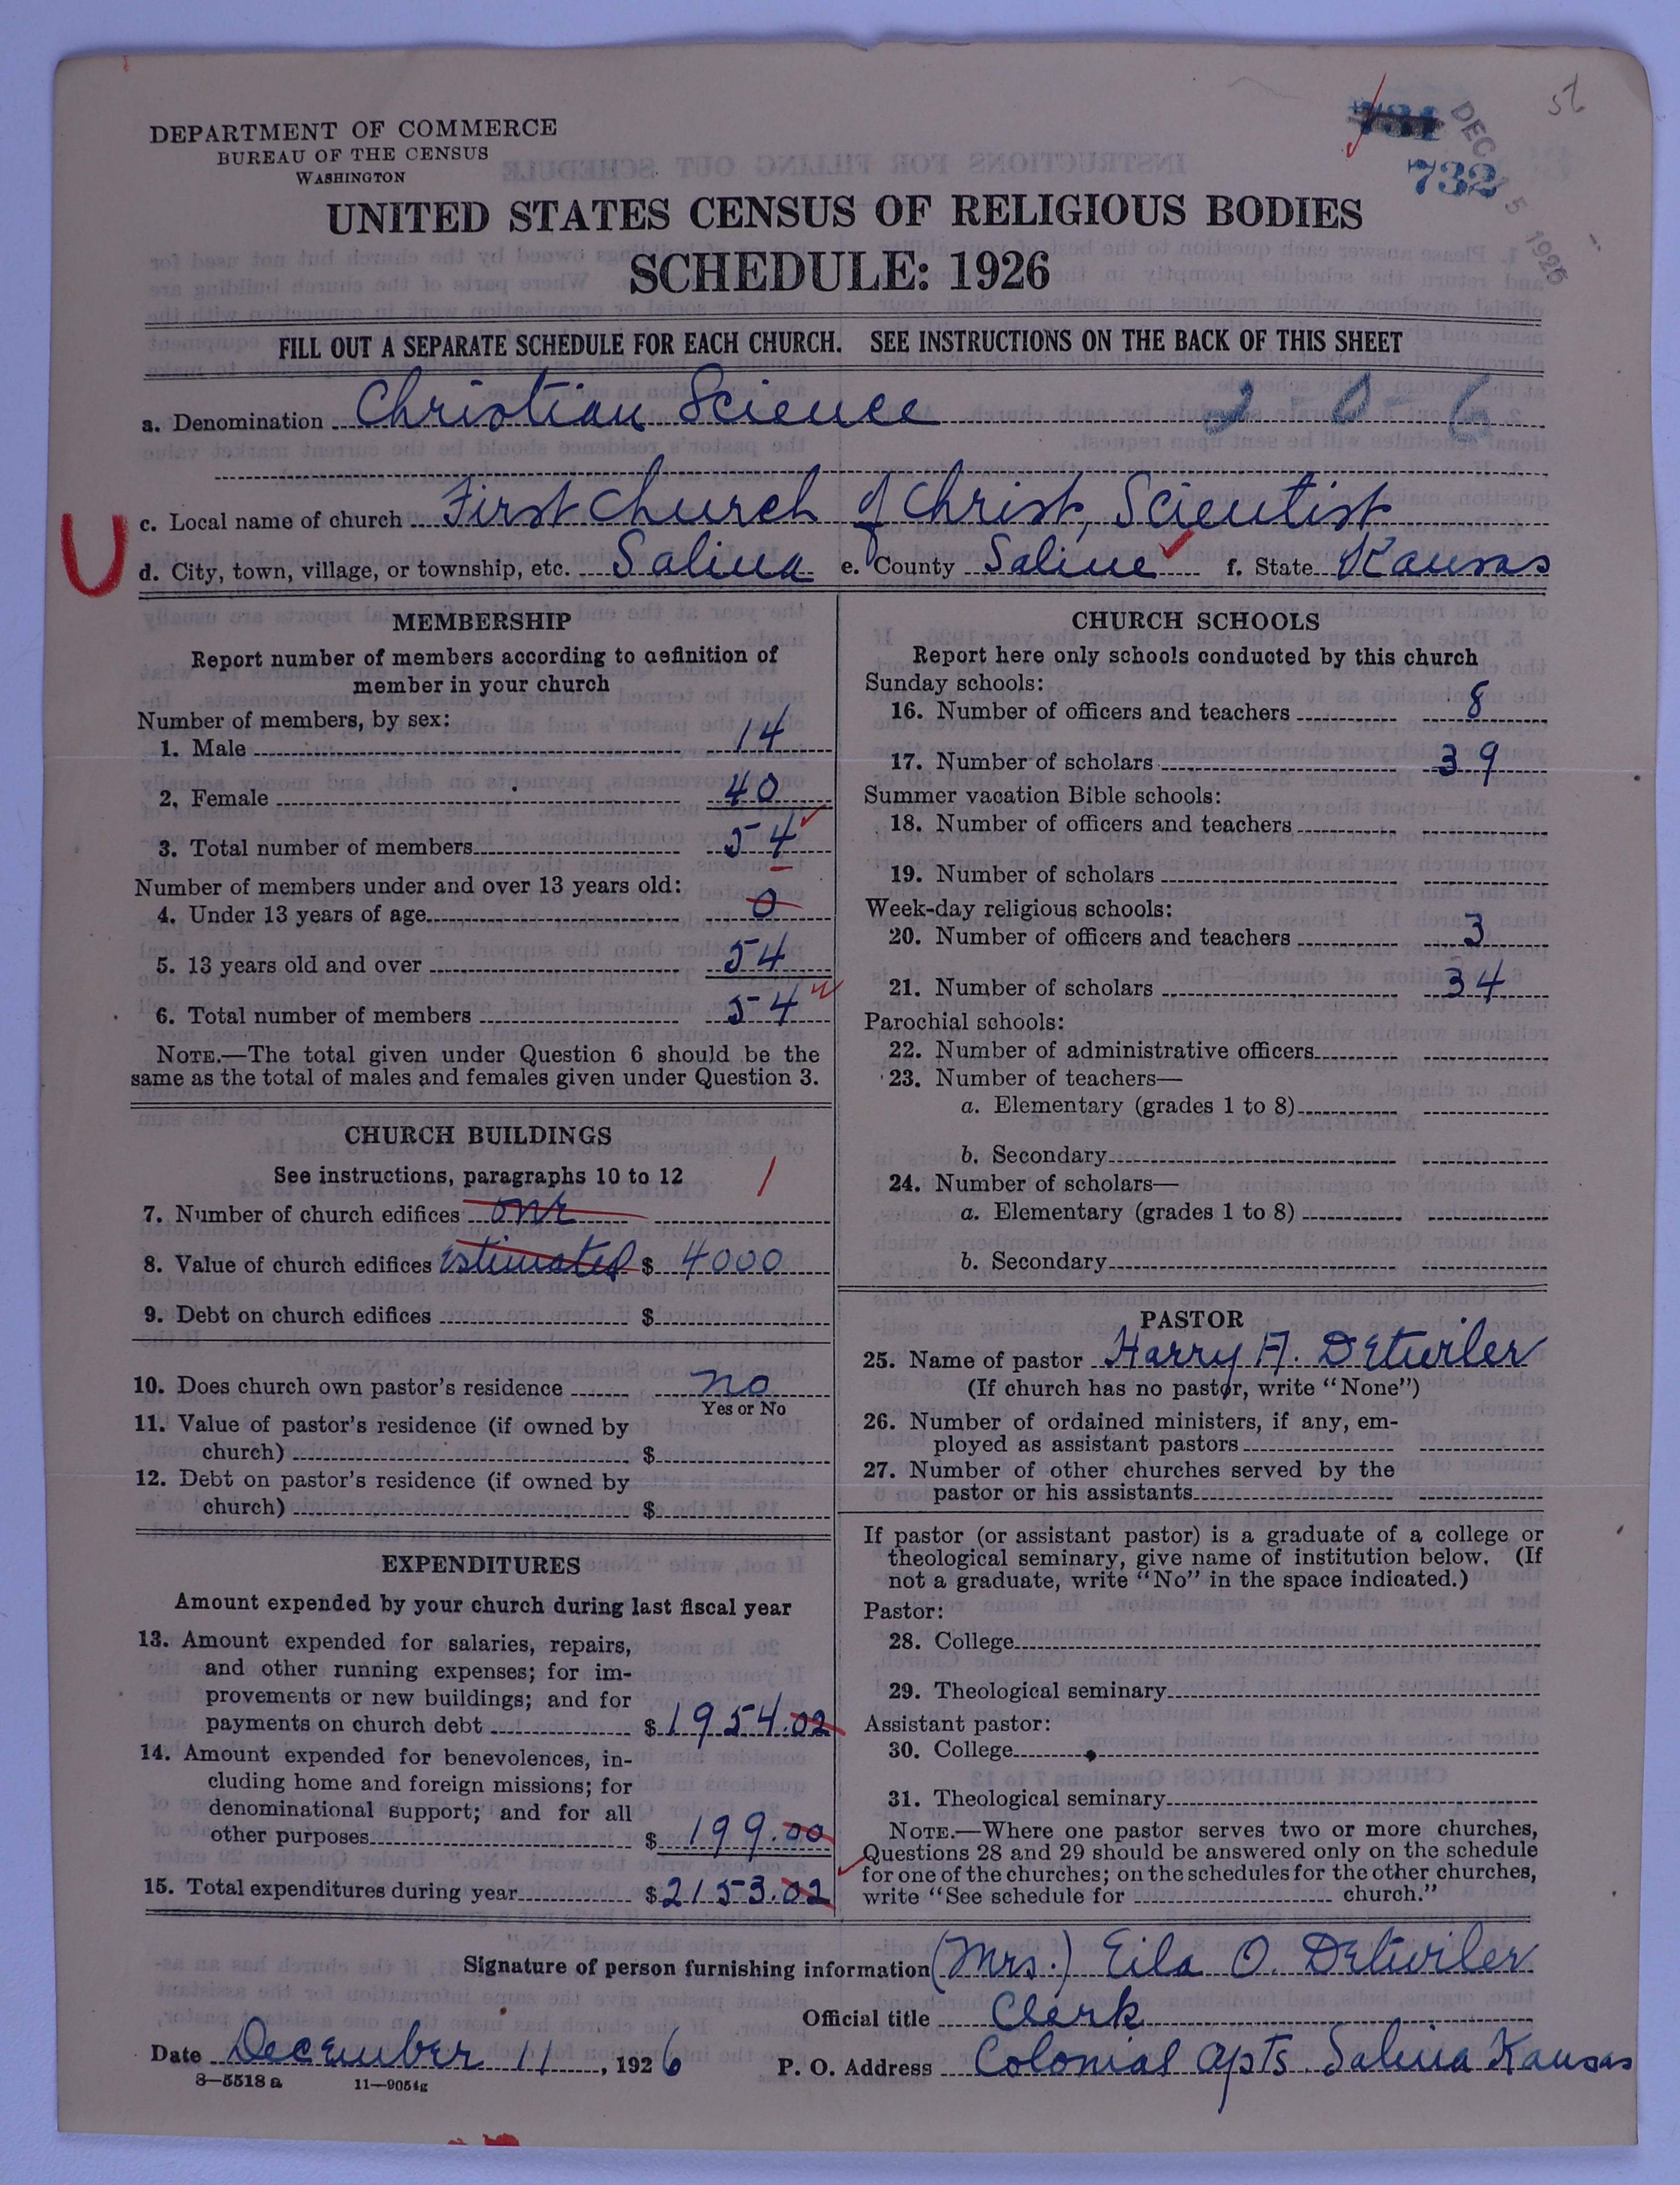 56
731
DEC 15 1926
732
DEPARTMENT OF COMMERCE
BUREAU OF THE CENSUS
WASHINGTON
UNITED STATES CENSUS OF RELIGIOUS BODIES
SCHEDULE: 1926
FILL OUT A SEPARATE SCHEDULE FOR EACH CHURCH. SEE INSTRUCTIONS ON THE BACK OF THIS SHEET
a. Denomination Christian Science 2-0-6
c. Local name of church First Church of Christ, Scientist
U
d. City, town, village, or township, etc. Salina e. County Saline f. State Kansas
MEMBERSHIP
Report number of members according to definition of
member in your church
Number of members, by sex:
1. Male 14
2. Female 40
3. Total number of members 54
Number of members under and over 13 years old:
4. Under 13 years of age 0
5. 13 years old and over 54
6. Total number of members 54
NOTE.—The total given under Question 6 should be the
same as the total of males and females given under Question 3.
CHURCH BUILDINGS
See instructions, paragraphs 10 to 12 1
7. Number of church edifices one
8. Value of church edifices estimated $ 4000
9. Debt on church edifices $
10. Does church own pastor's residence no
Yes or No
11. Value of pastor's residence (if owned by
church) $
12. Debt on pastor's residence (if owned by
church) $
EXPENDITURES
Amount expended by your church during last fiscal year
13. Amount expended for salaries, repairs,
and other running expenses; for im-
provements or new buildings; and for
payments on church debt $ 1954.02
14. Amount expended for benevolences, in-
cluding home and foreign missions; for
denominational support; and for all
other purposes $ 199.00
15. Total expenditures during year $ 2153.02
CHURCH SCHOOLS
Report here only schools conducted by this church
Sunday schools:
16. Number of officers and teachers 8
17. Number of scholars 39
Summer vacation Bible schools:
18. Number of officers and teachers
19. Number of scholars
Week-day religious schools:
20. Number of officers and teachers 3
21. Number of scholars 34
Parochial schools:
22. Number of administrative officers
23. Number of teachers—
a. Elementary (grades 1 to 8)
b. Secondary
24. Number of scholars—
a. Elementary (grades 1 to 8)
b. Secondary
PASTOR
25. Name of pastor Harry A. Detwiler
(If church has no pastor, write "None")
26. Number of ordained ministers, if any, em-
ployed as assistant pastors
27. Number of other churches served by the
pastor or his assistants
If pastor (or assistant pastor) is a graduate of a college or
theological seminary, give name of institution below. (If
not a graduate, write "No" in the space indicated.)
Pastor:
28. College
29. Theological seminary
Assistant pastor:
30. College
31. Theological seminary
NOTE.—Where one pastor serves two or more churches,
Questions 28 and 29 should be answered only on the schedule
for one of the churches; on the schedules for the other churches,
write "See schedule for church."
Signature of person furnishing information (Mrs.) Eila O. Detwiler
Official title Clerk
Date December 11, 1926 P. O. Address Colonial Apts. Salina Kansas
8—5518 a 11—9054g